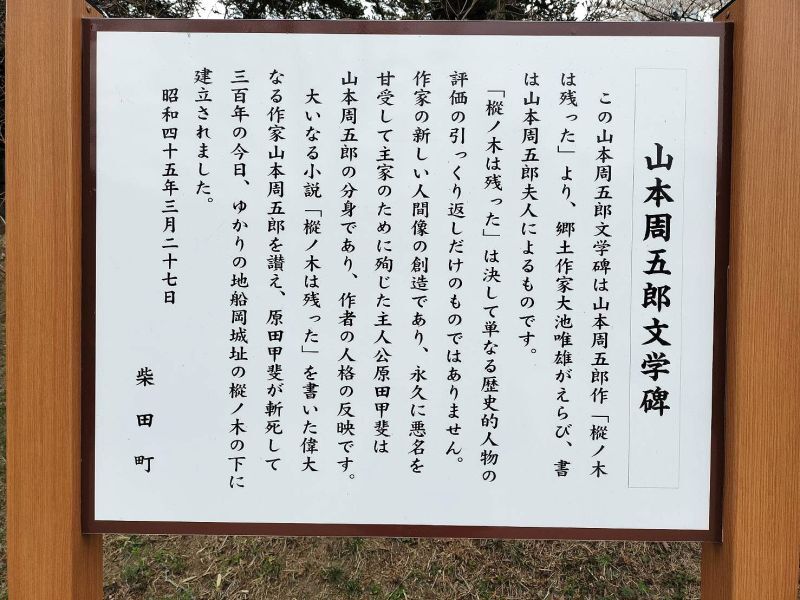 山本周五郎文学碑
この山本周五郎文学碑は山本周五郎作「樅ノ木
は残った」より、郷土作家大池唯雄がえらび、書
は山本周五郎夫人によるものです。
「樅ノ木は残った」は決して単なる歴史的人物の
評価の引っくり返しだけのものではありません。
作家の新しい人間像の創造であり、永久に悪名を
甘受して主家のために殉じた主人公原田甲斐は
山本周五郎の分身であり、作者の人格の反映です。
大いなる小説「樅ノ木は残った」を書いた偉大
なる作家山本周五郎を讃え、原田甲斐が斬死して
三百年の今日、ゆかりの地船岡城址の樅ノ木の下に
建立されました。
昭和四十五年三月二十七日
柴田町